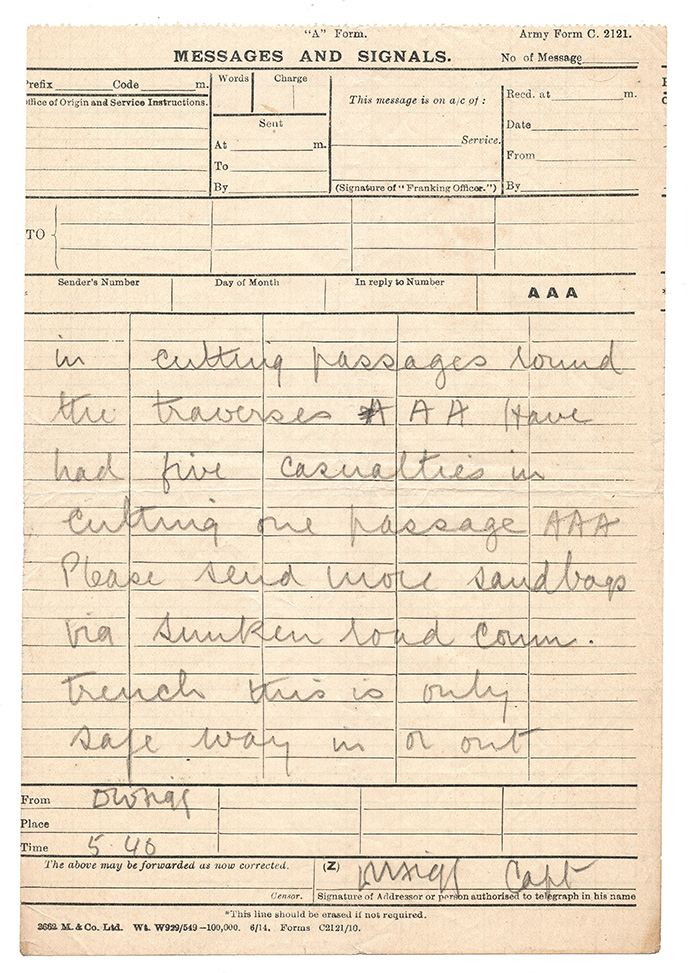 "A" Form. Army Form C. 2121.
MESSAGES AND SIGNALS. No of Message
Prefix Code m. Words Charge
Office of Origin and Service Instructions. This message is on a/c of : Recd. at m.
Sent
At m. Service. Date
To From
By (Signature of "Franking Officer.") By
TO
Sender's Number Day of Month In reply to Number AAA
in cutting passages round
the traverses A A A Have
had five casualties in
cutting one passage AAA
Please send more sandbags
via sunken road comm.
trench this is only
safe way in or out
From
Place
Time 5 40
The above may be forwarded as now corrected. (Z) Capt
Censor. Signature of Addressor or person authorised to telegraph in his name
*This line should be erased if not required.
2662 M. & Co. Ltd. Wt. W929/549—100,000. 6/14. Forms C2121/10.